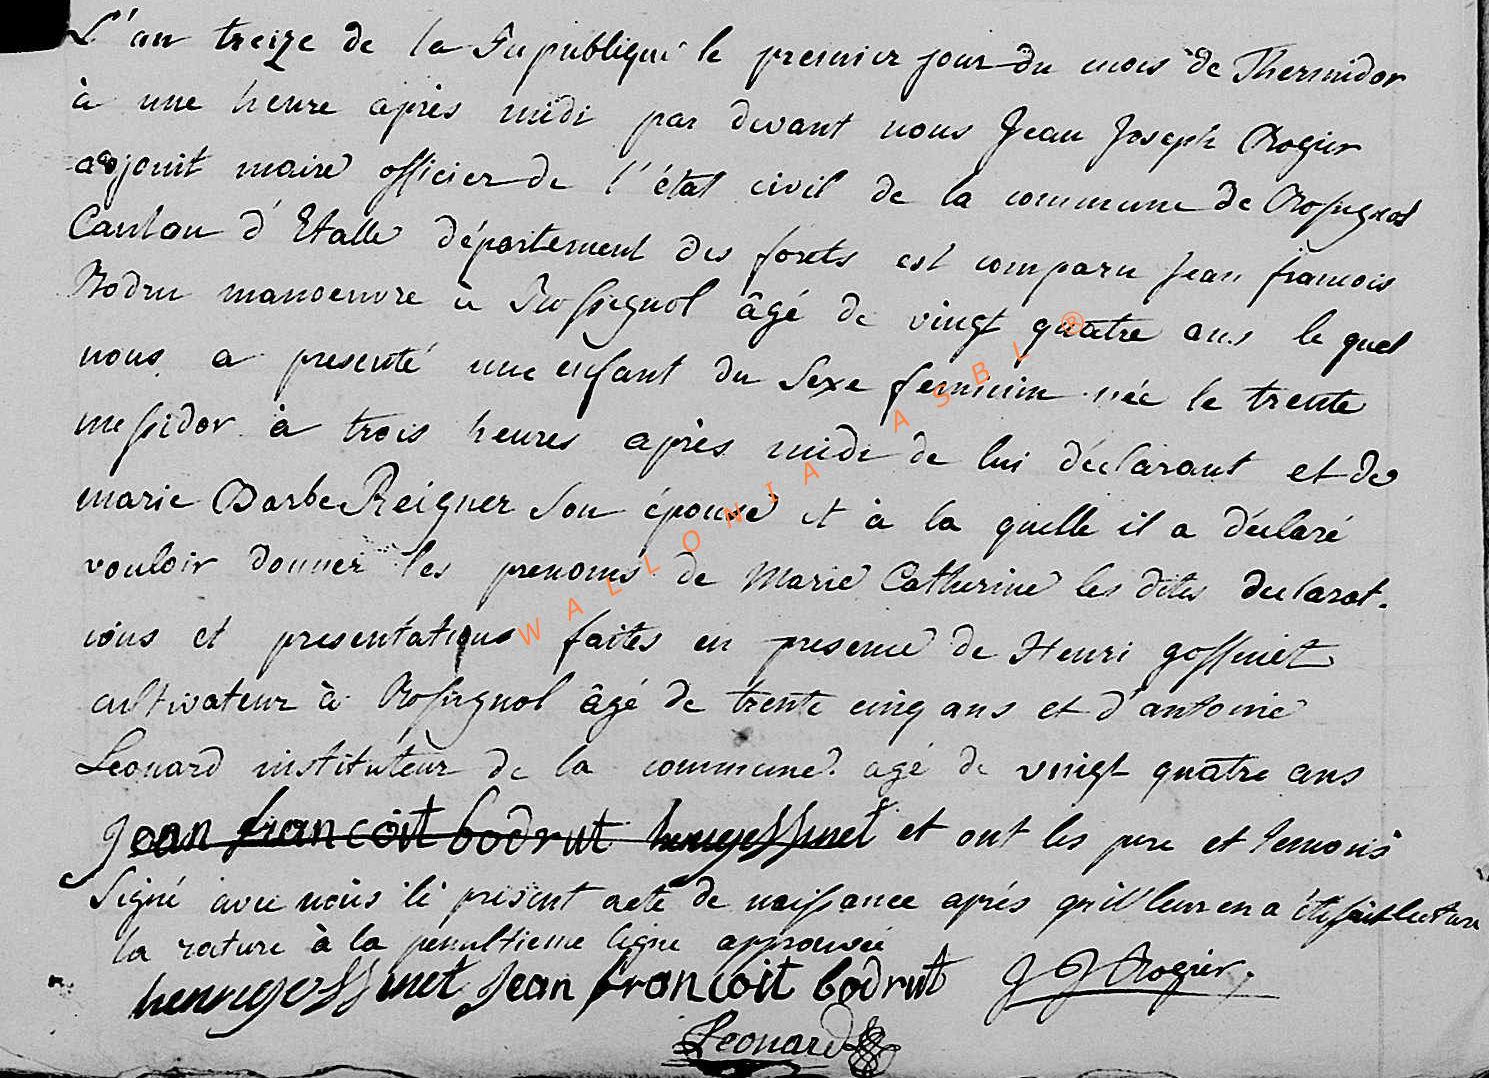 L'an treize de la Republique le premier jour du mois de Thermidor
à une heure après midi par devant nous Jean Joseph Rogier
adjoint maire officier de l'état civil de la commune de Rossignol
Canton d'Etalle département des forets est comparu Jean francois
Bodru manoeuvre à Rossignol âgé de vingt quatre ans le quel
nous a presenté une enfant du Sexe feminin née le trente
messidor à trois heures après midi de lui déclarant et de
marie Barbe Reigner son épouse et à la quelle il a déclaré
vouloir donner les prenoms de Marie Catherine les dites declarat-
ions et presentations faites en presence de Henri gossinet
cultivateur à Rossignol âgé de trente cinq ans et d'antoine
Leonard instituteur de la commune agé de vingt quatre ans
Jean francoit bodrut henrygossinet et ont les pere et temoins
Signé avec nous le present acte de naissance après qu'il leur en a été fait lecture
la rature à la penultieme ligne approuvée
henrygossinet Jean francoit bodrut J J Rogier.
Leonard
WALLONIA ASBL ®